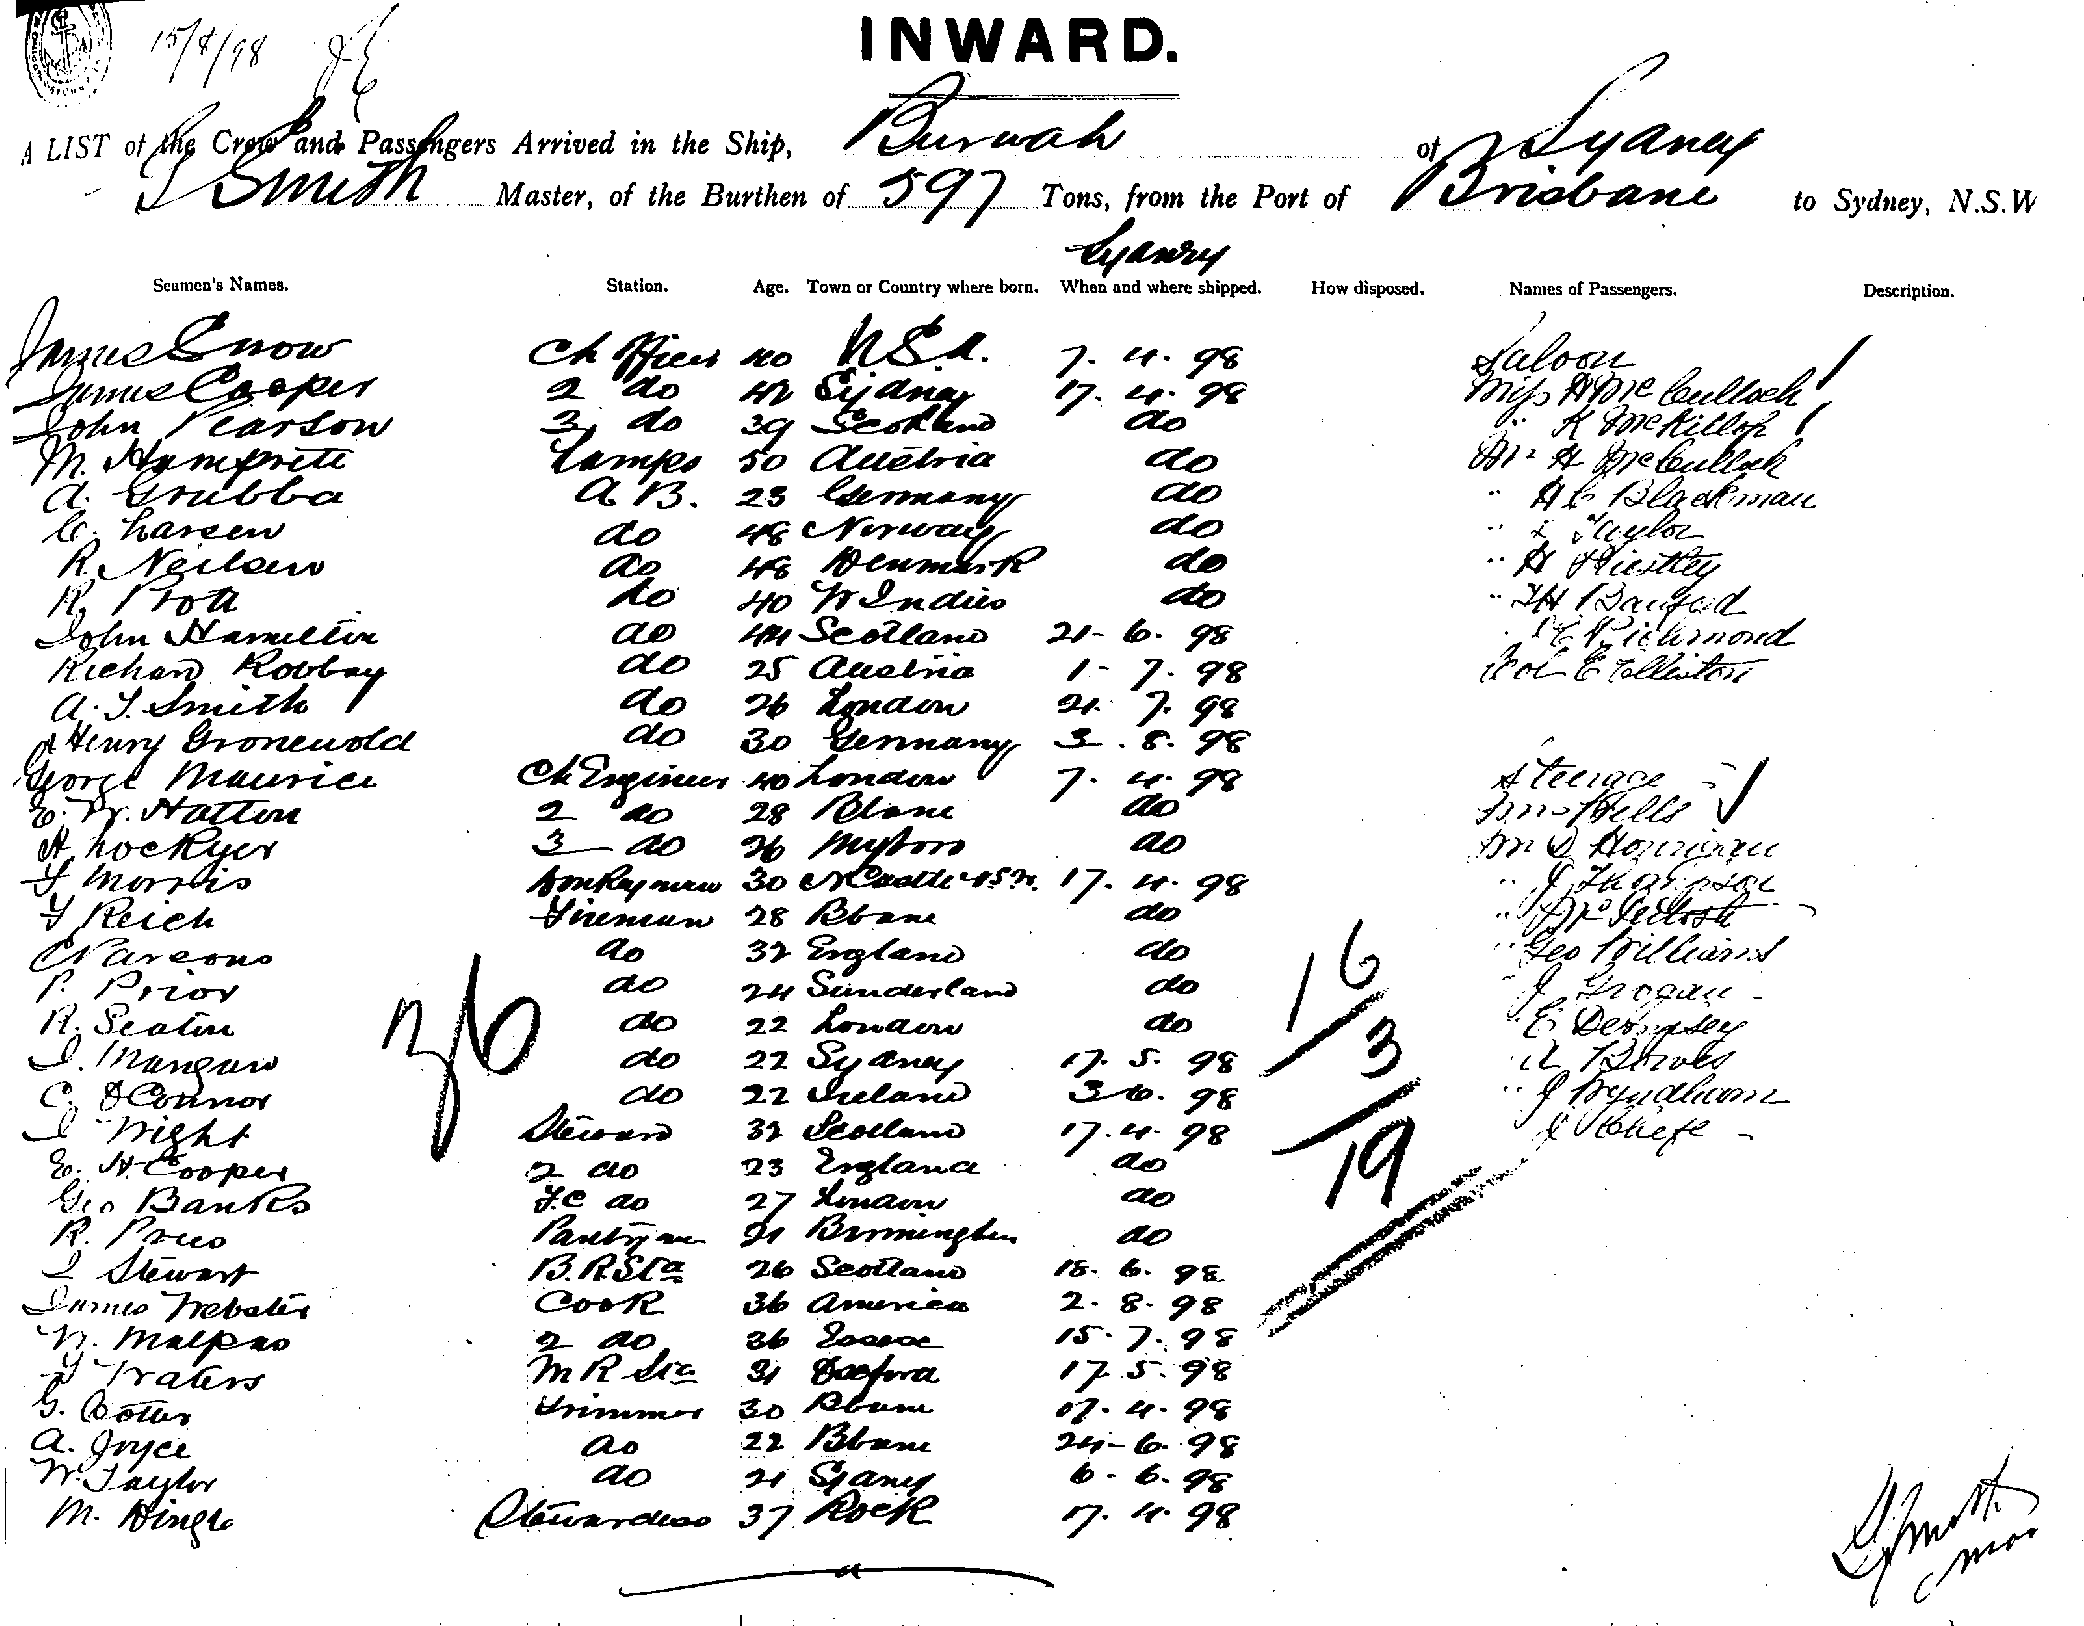 15/8/98
INWARD.
A LIST of the Crew and Passengers Arrived in the Ship, Burwah of Sydney
Smith Master, of the Burthen of 597 Tons, from the Port of Brisbane to Sydney, N.S.W
Sydney
Seamen's Names. Station. Age. Town or Country where born. When and where shipped. How disposed. Names of Passengers. Description.
James Snow Ch Officer 40 7. 4. 98 Saloon
James Cooper 2 do 42 Sydney 17. 4. 98 Miss H McCulloch
John Pearson 3 do 39 Scotland do " K McKillop
M. Lamps 50 Austria do Mr H McCulloch
A. Grubba A B. 23 Germany do " H C Blackman
C. Larsen do 48 Norway do " Taylor
R. Neilsen do 48 Denmark do " H Priestley
R. Pott do 40 W Indies do "
John Hamilton do 44 Scotland 21- 6. 98 Richmond
Richard Robbay do 25 Austria 1- 7. 98 Col E
A. T. Smith do 26 London 21. 7. 98
Henry Gronewold do 30 Germany 3. 8. 98
George Maurice Ch Engineer 40 London 7. 4. 98 Steerage
E. W. Hatton 2 do 28 Bbane do Mrs Wells
A Lockyer 3 do 26 do Mr D Hourigan
T Morris Donkeyman 30 NCastle NSW. 17. 4. 98 " J Thompson
T Reich Fireman 28 Bbane do " McIntosh
C Parsons do 32 England do " Geo Williams
P. Prior do 24 Sunderland do " J Grogan
R. Seaton do 22 London do " E Dempsey
J. Mangan do 22 Sydney 17. 5. 98 Bowes
C. O'Connor do 22 Ireland 3 6. 98 " J Wyndham
J Wight Steward 32 Scotland 17. 4. 98 J
E. H. Cooper 2 do 23 England do
Geo Banks F.C do 27 London do
R. Pantryman 21 Birmingham do
J Stewart B.R.Std 26 Scotland 18. 6. 98
James Webster Cook 36 America 2. 8. 98
W. Malpas 2 do 36 Essex 15. 7. 98
T Waters M R Std 31 17 5. 98
G. Cotter Trimmer 30 Bbane 17. 4. 98
A. Joyce do 22 Bbane 24- 6. 98
W. Taylor do 21 Sydney 6. 6. 98
M. Hingle Stewardess 37 Rock 17. 4. 98
36
16
3
19
Smith